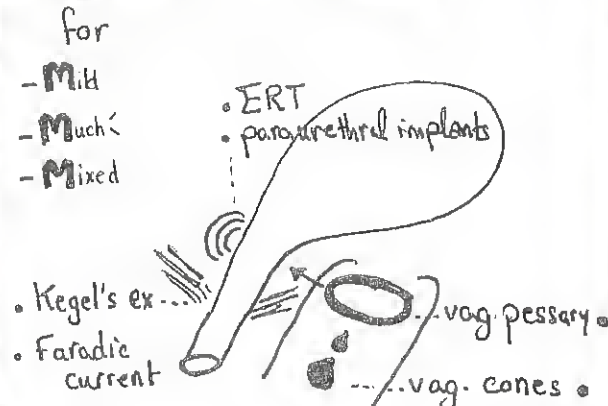 for
- Mild
- Much<
- Mixed
• ERT
• paraurethral implants
• Kegel's ex
• Faradic
current
vag. pessary •
vag. cones •